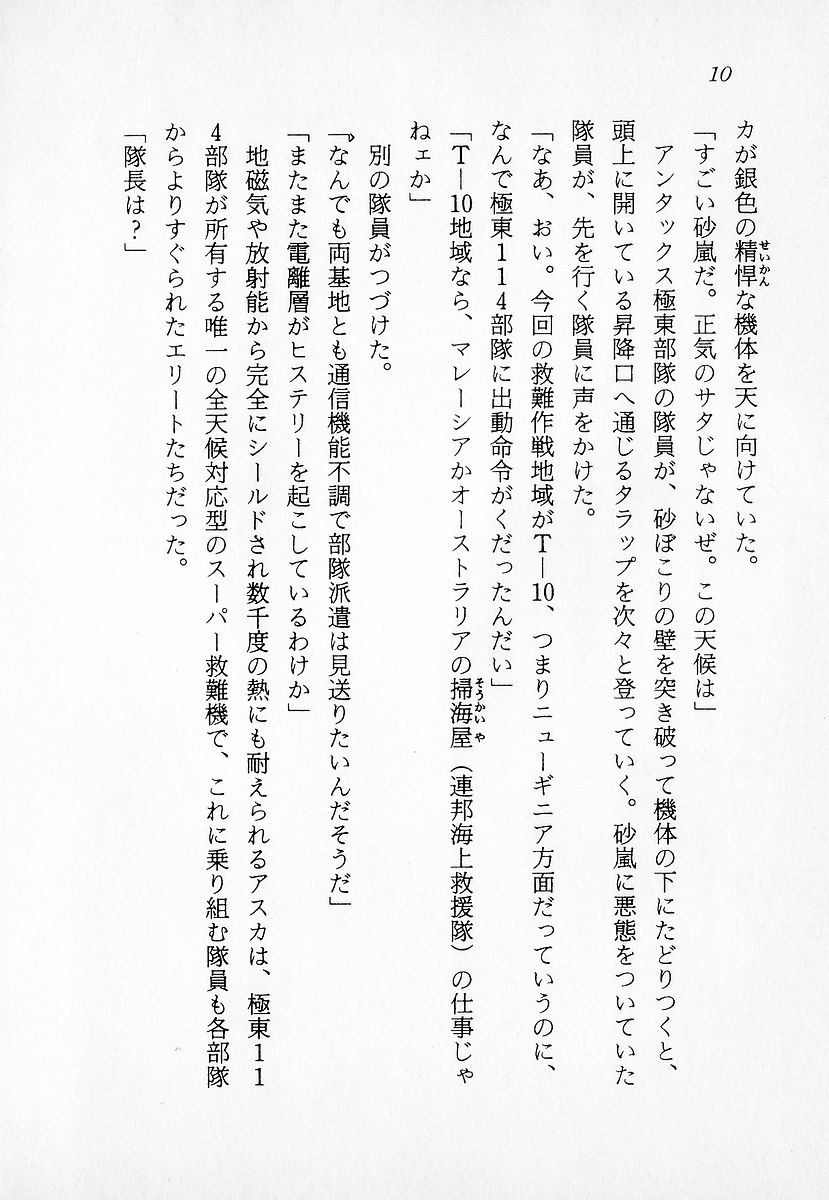 10
カが銀色の精悍な機体を天に向けていた。
「すごい砂嵐だ。正気のサタじゃないぜ。この天候は」
アンタックス極東部隊の隊員が、砂ぼこりの壁を突き破って機体の下にたどりつくと、
頭上に開いている昇降口へ通じるタラップを次々と登っていく。砂嵐に悪態をついていた
隊員が、先を行く隊員に声をかけた。
「なあ、おい。今回の救難作戦地域がT—10、つまりニューギニア方面だっていうのに、
なんで極東114部隊に出動命令がくだったんだい」
「T—10地域なら、マレーシアかオーストラリアの掃海屋（連邦海上救援隊）の仕事じゃ
ねェか」
別の隊員がつづけた。
「なんでも両基地とも通信機能不調で部隊派遣は見送りたいんだそうだ」
「またまた電離層がヒステリーを起こしているわけか」
地磁気や放射能から完全にシールドされ数千度の熱にも耐えられるアスカは、極東11
4部隊が所有する唯一の全天候対応型のスーパー救難機で、これに乗り組む隊員も各部隊
からよりすぐられたエリートたちだった。
「隊長は？」